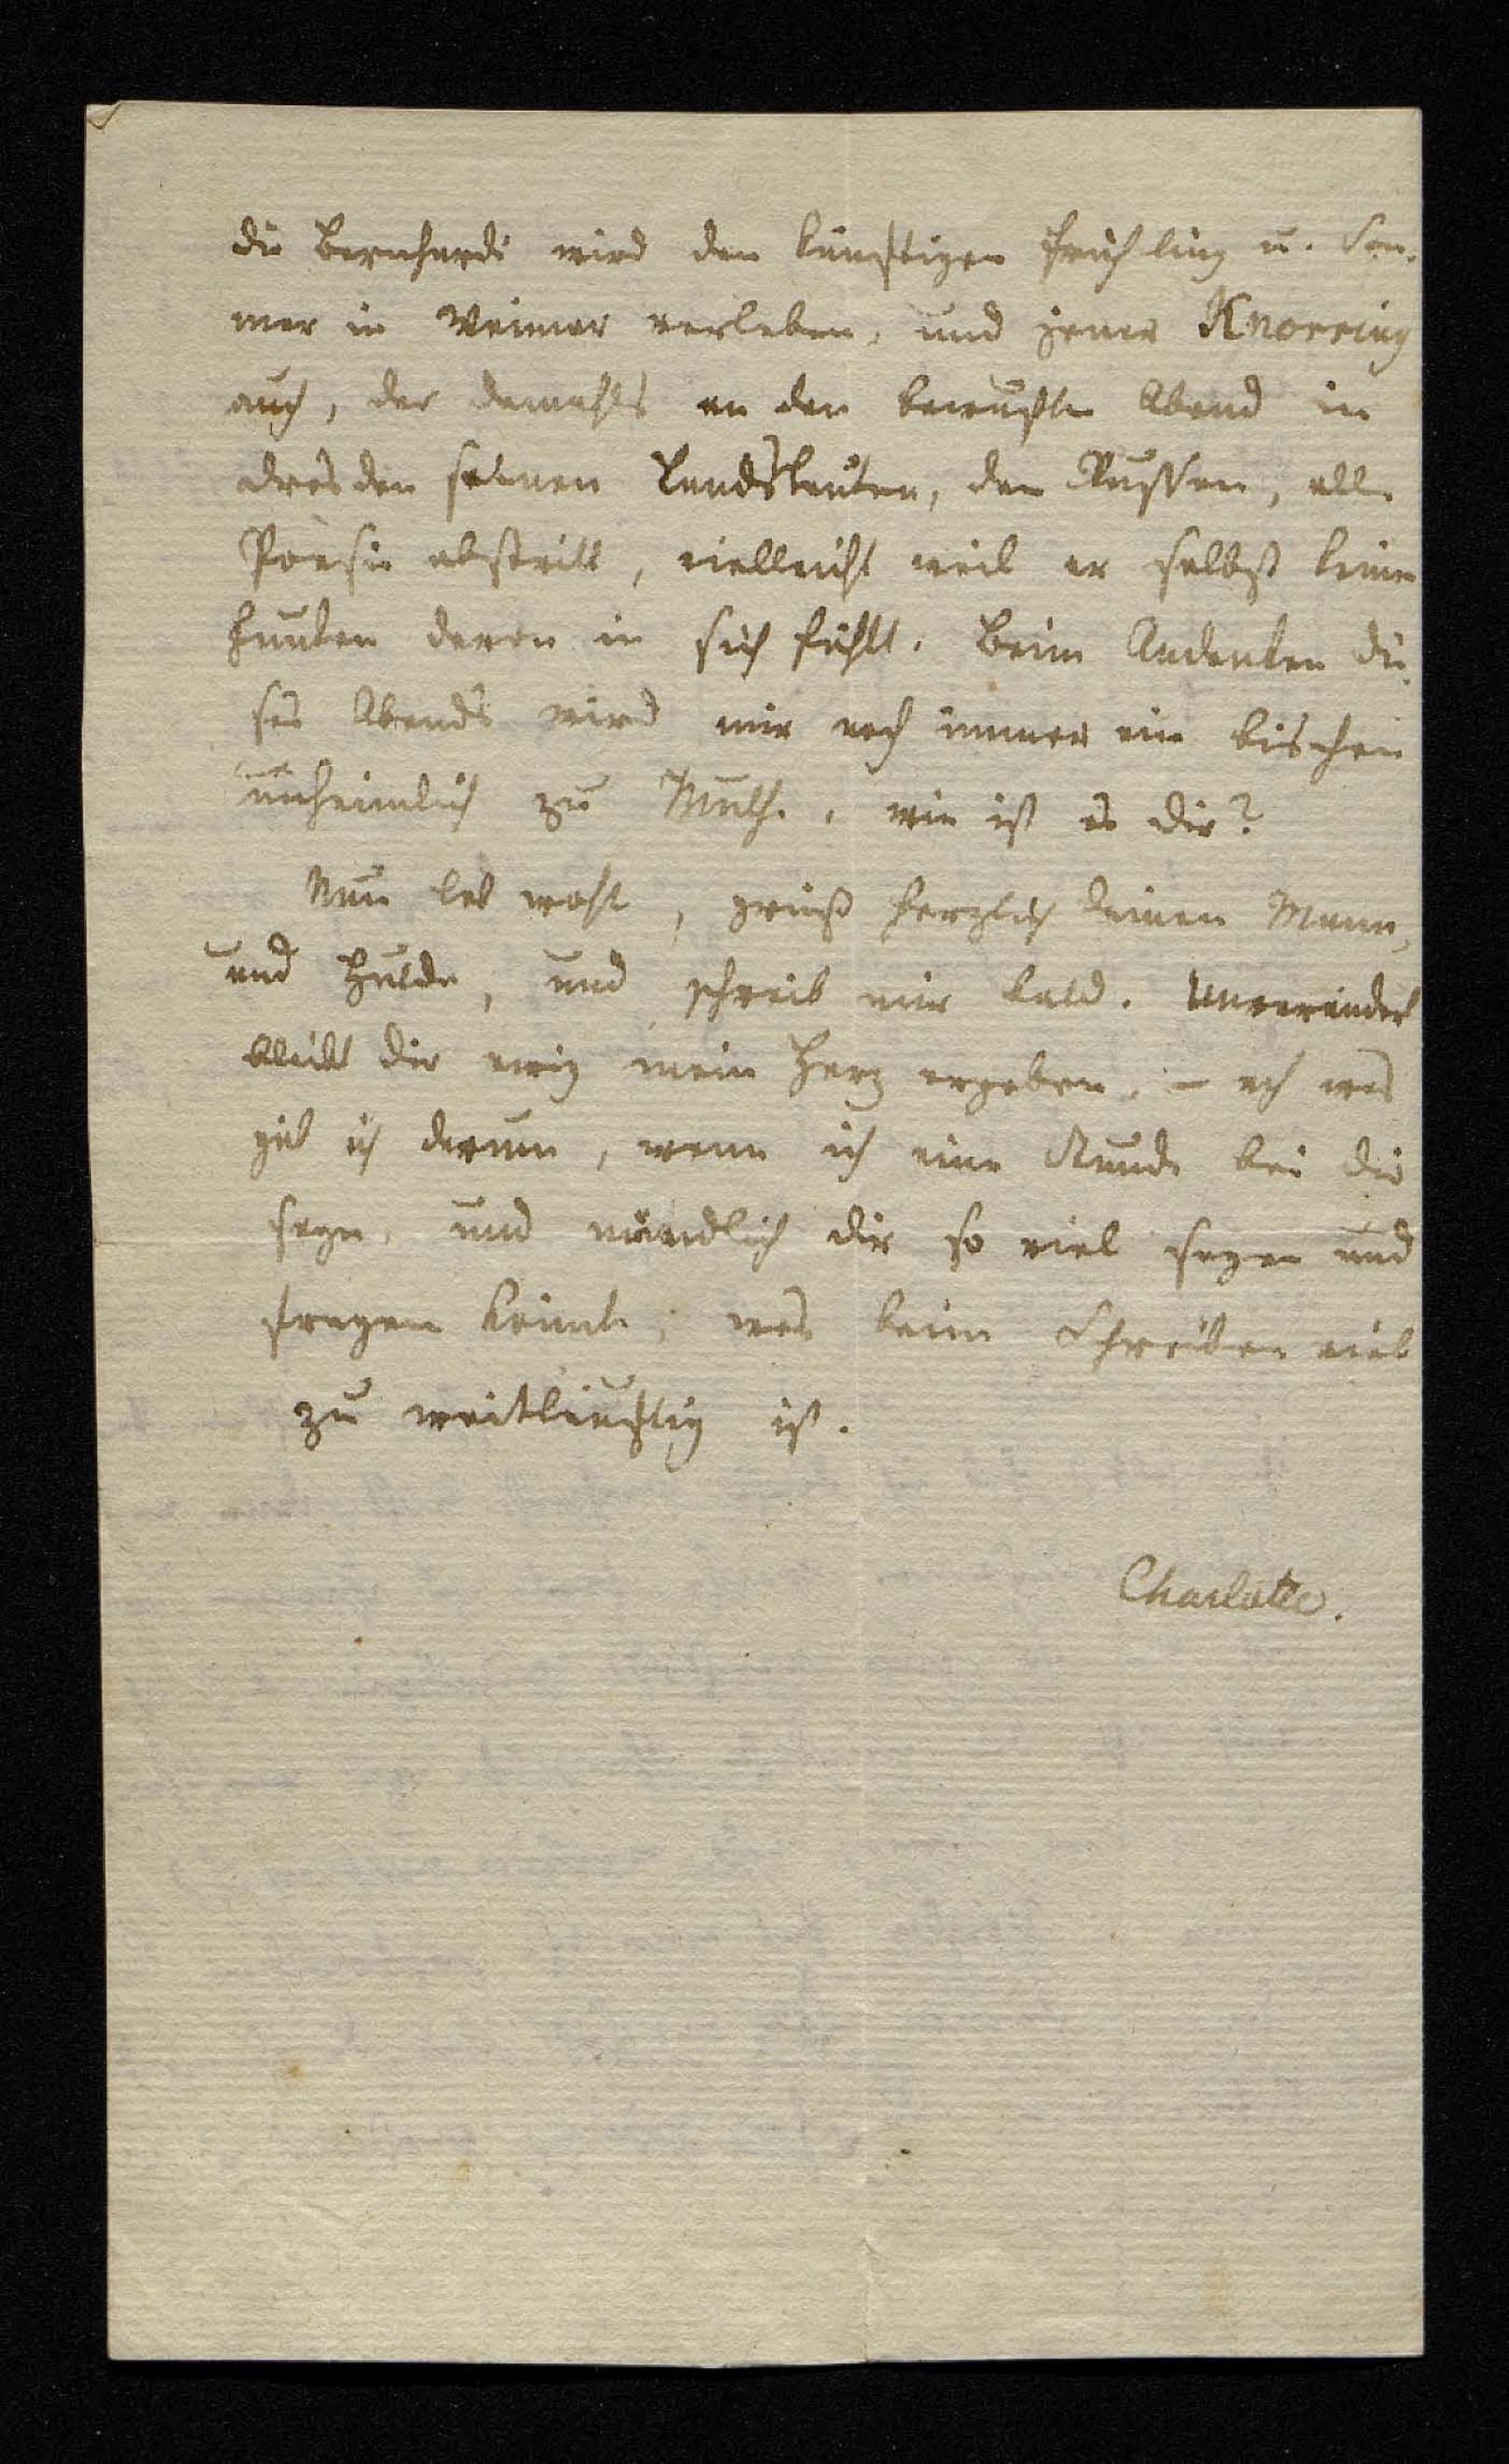 die Bernhardi wird den künftigen Frühling u. Som-
mer in Weimar verleben, und jener Knorring
auch, der damahls an den bewußten Abend in
Dresden seinen Landsleuten, den Russen, alle
Poesie abstritt, vielleicht weil er selbst keinen
Funken davon in sich fühlt. Beim Andenken die-
ses Abends wird mir noch immer ein bischen
unheimlich zu Muthe, wie ist es dir?
Nun leb wohl, grüß herzlich deinen Mann,
und Hulda, und schreib mir bald. Unverändert
bleibt dir ewig mein Herz ergeben, – ach was
gäb ich darum, wenn ich eine Stunde bei dir
seyn, und mündlich dir so viel sagen und
fragen könnte, was beim Schreiben viel
zu weitläuftig ist.
Charlotte.